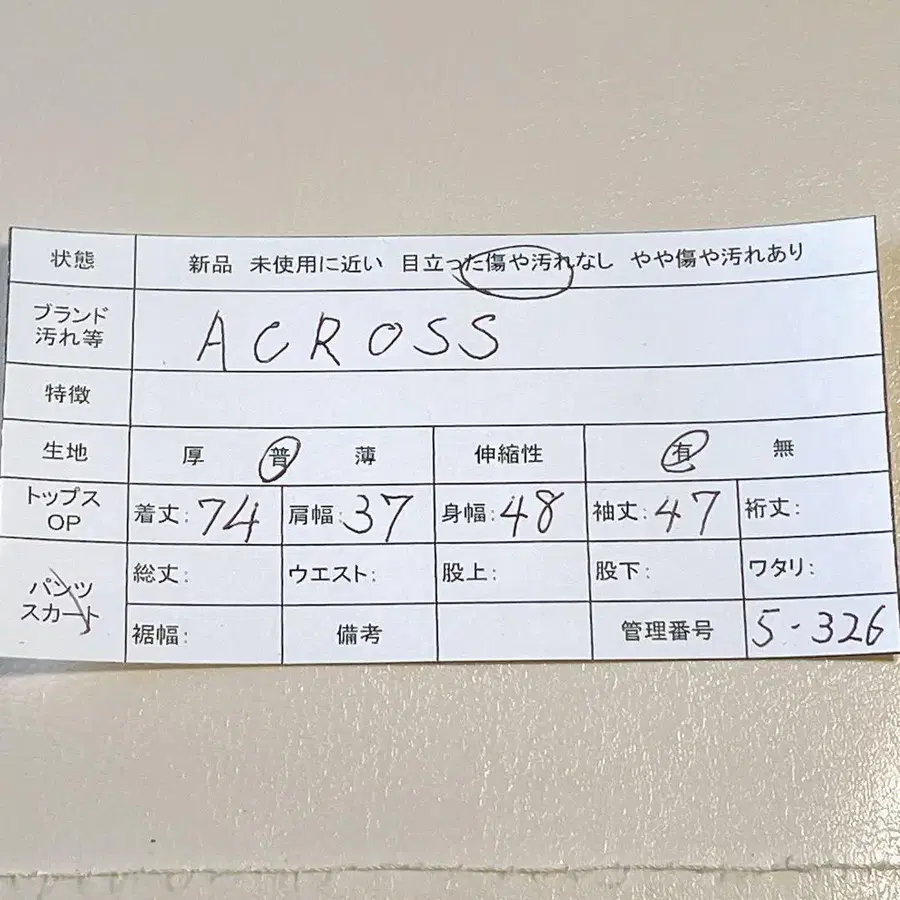 状態 新品 未使用に近い 目立った傷や汚れなし やや傷や汚れあり
ブランド
汚れ等
ACROSS
特徴
生地 厚 普 薄 伸縮性 有 無
トップス
OP
着丈:74 肩幅:37 身幅:48 袖丈:47 裄丈:
パンツ
スカート
総丈: ウエスト: 股上: 股下: ワタリ:
裾幅: 備考 管理番号 5-326